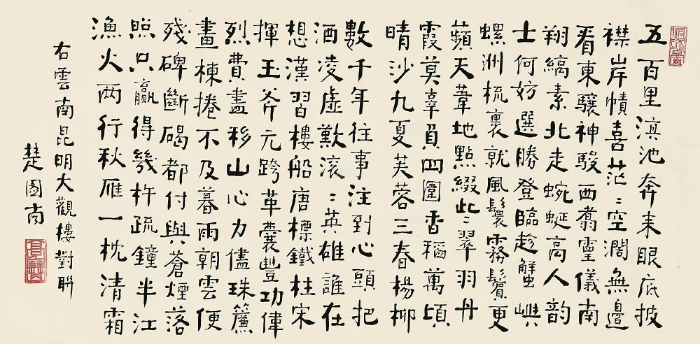 五百里滇池奔来眼底披
襟岸幘喜茫〻空闊無邊
看東驤神駿西翥靈儀南
翔縞素北走蜿蜒高人韻
士何妨選勝登臨趁蟹嶼
螺洲梳裹就風鬟霧鬢更
蘋天葦地點綴些〻翠羽丹
霞莫辜負四圍香稻萬頃
晴沙九夏芙蓉三春楊柳
數千年往事注到心頭把
酒凌虛歎滾〻英雄誰在
想漢習樓船唐標鐵柱宋
揮玉斧元跨革囊豐功偉
烈費盡移山心力儘珠簾
畫棟捲不及暮雨朝雲便
殘碑斷碣都付與蒼煙落
照只贏得幾杵疏鐘半江
漁火兩行秋雁一枕清霜
右雲南昆明大觀樓對聨
楚圖南